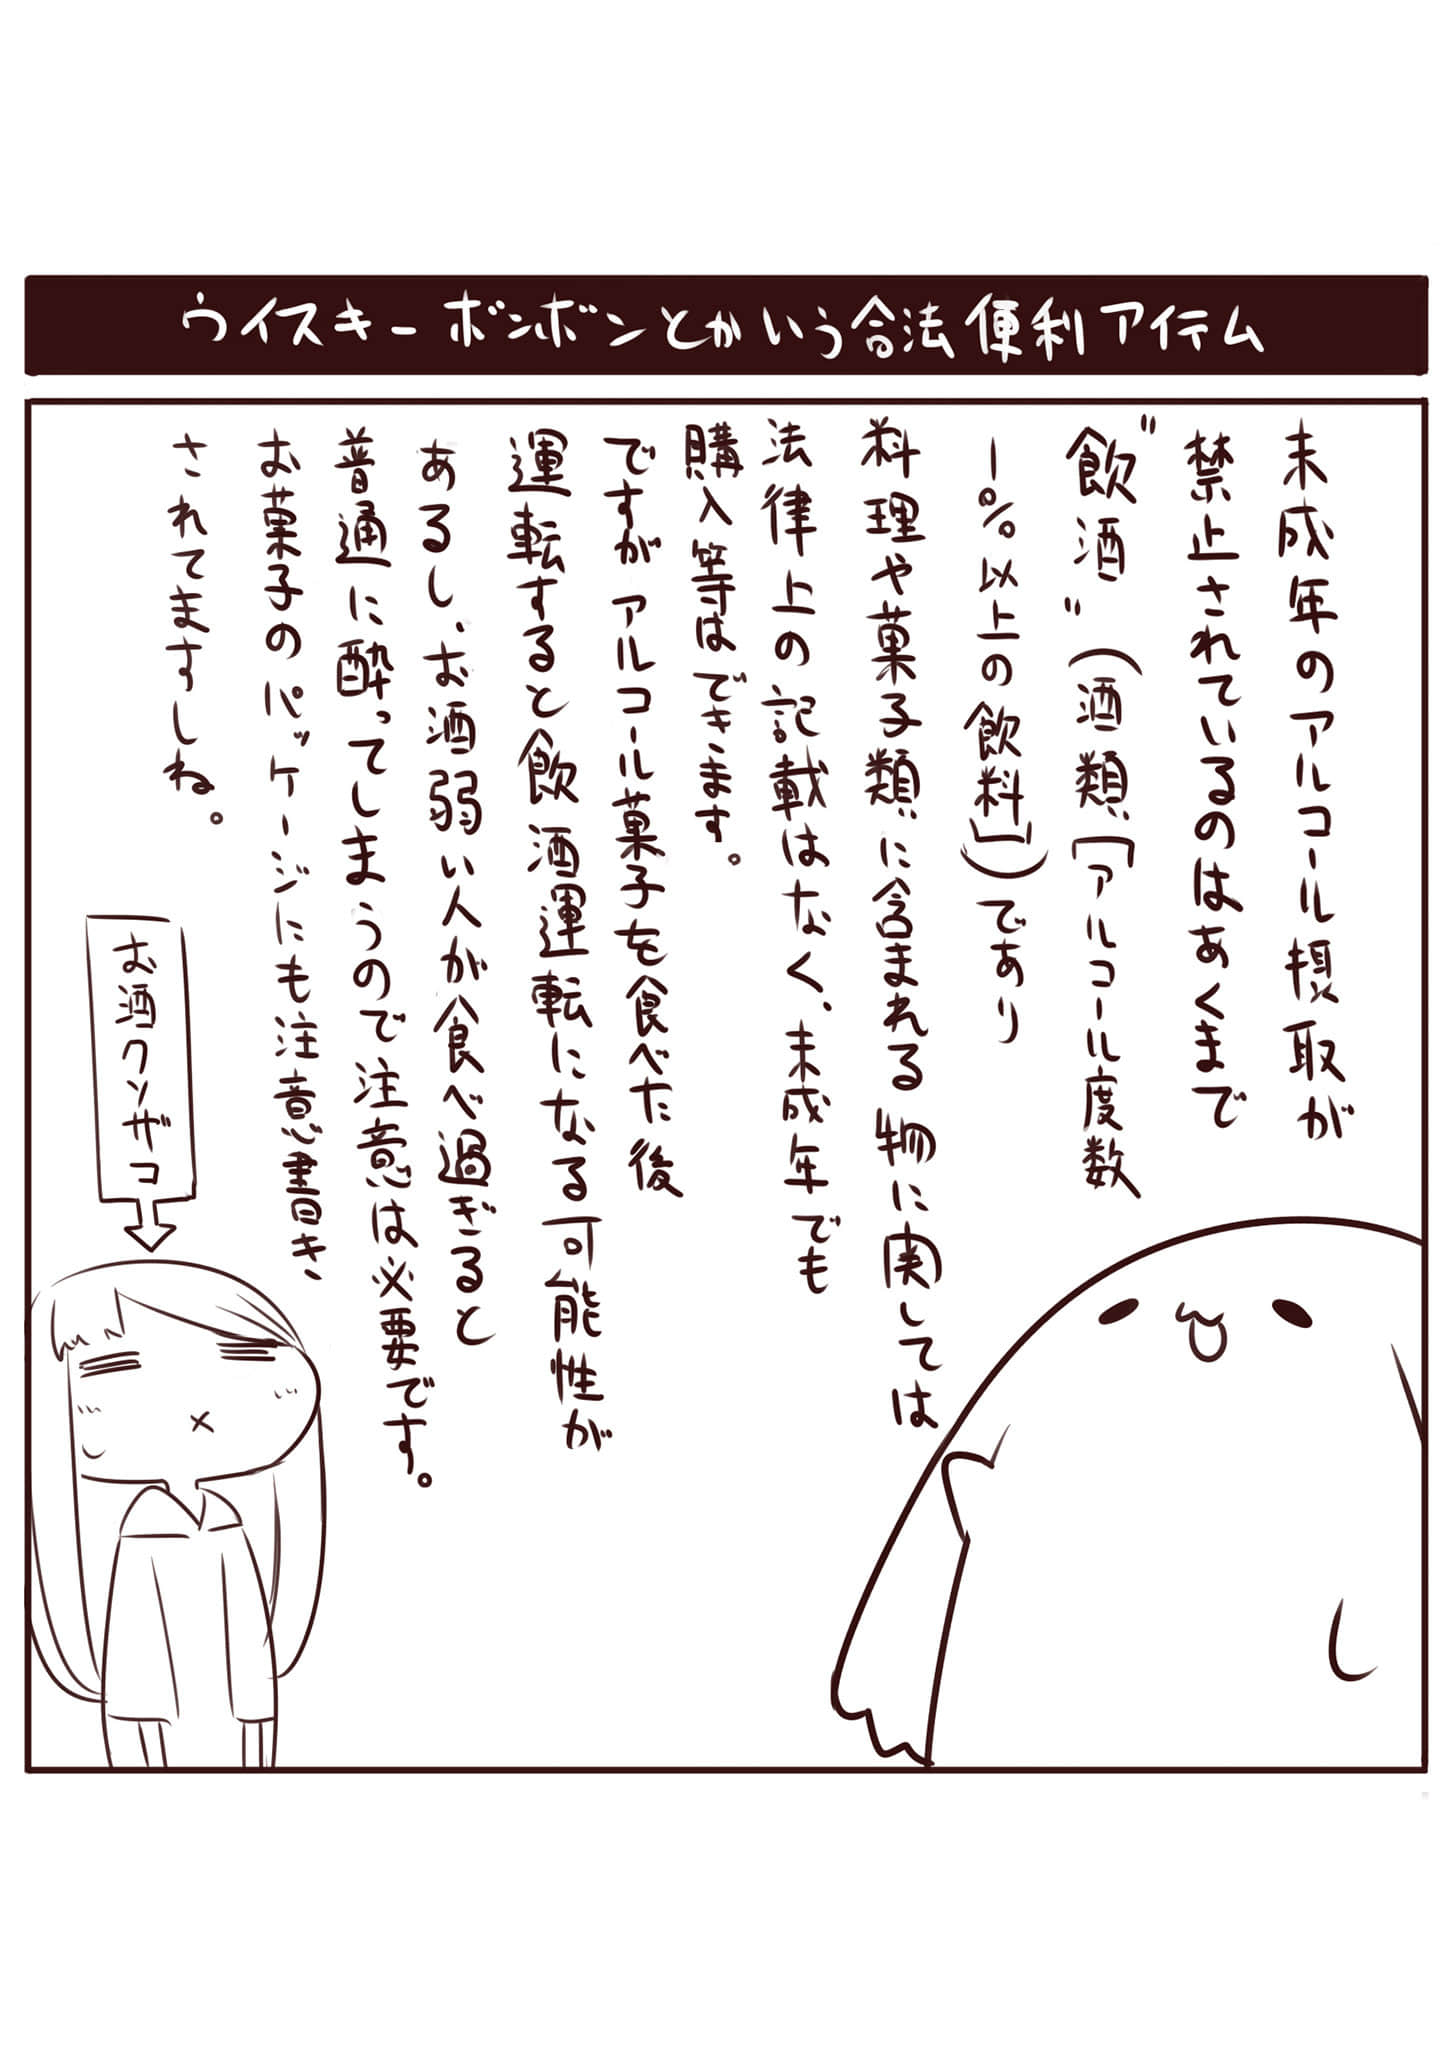 ウイスキーボンボンとかいう合法便利アイテム
未成年のアルコール摂取が
禁止されているのはあくまで
"飲酒"(酒類「アルコール度数
1%以上の飲料」)であり
料理や菓子類に含まれる物に関しては
法律上の記載はなく、未成年でも
購入等はできます。
ですがアルコール菓子を食べた後
運転すると飲酒運転になる可能性が
あるし、お酒弱い人が食べ過ぎると
普通に酔ってしまうので注意は必要です。
お菓子のパッケージにも注意書き、
されてますしね。
お酒クソザコ